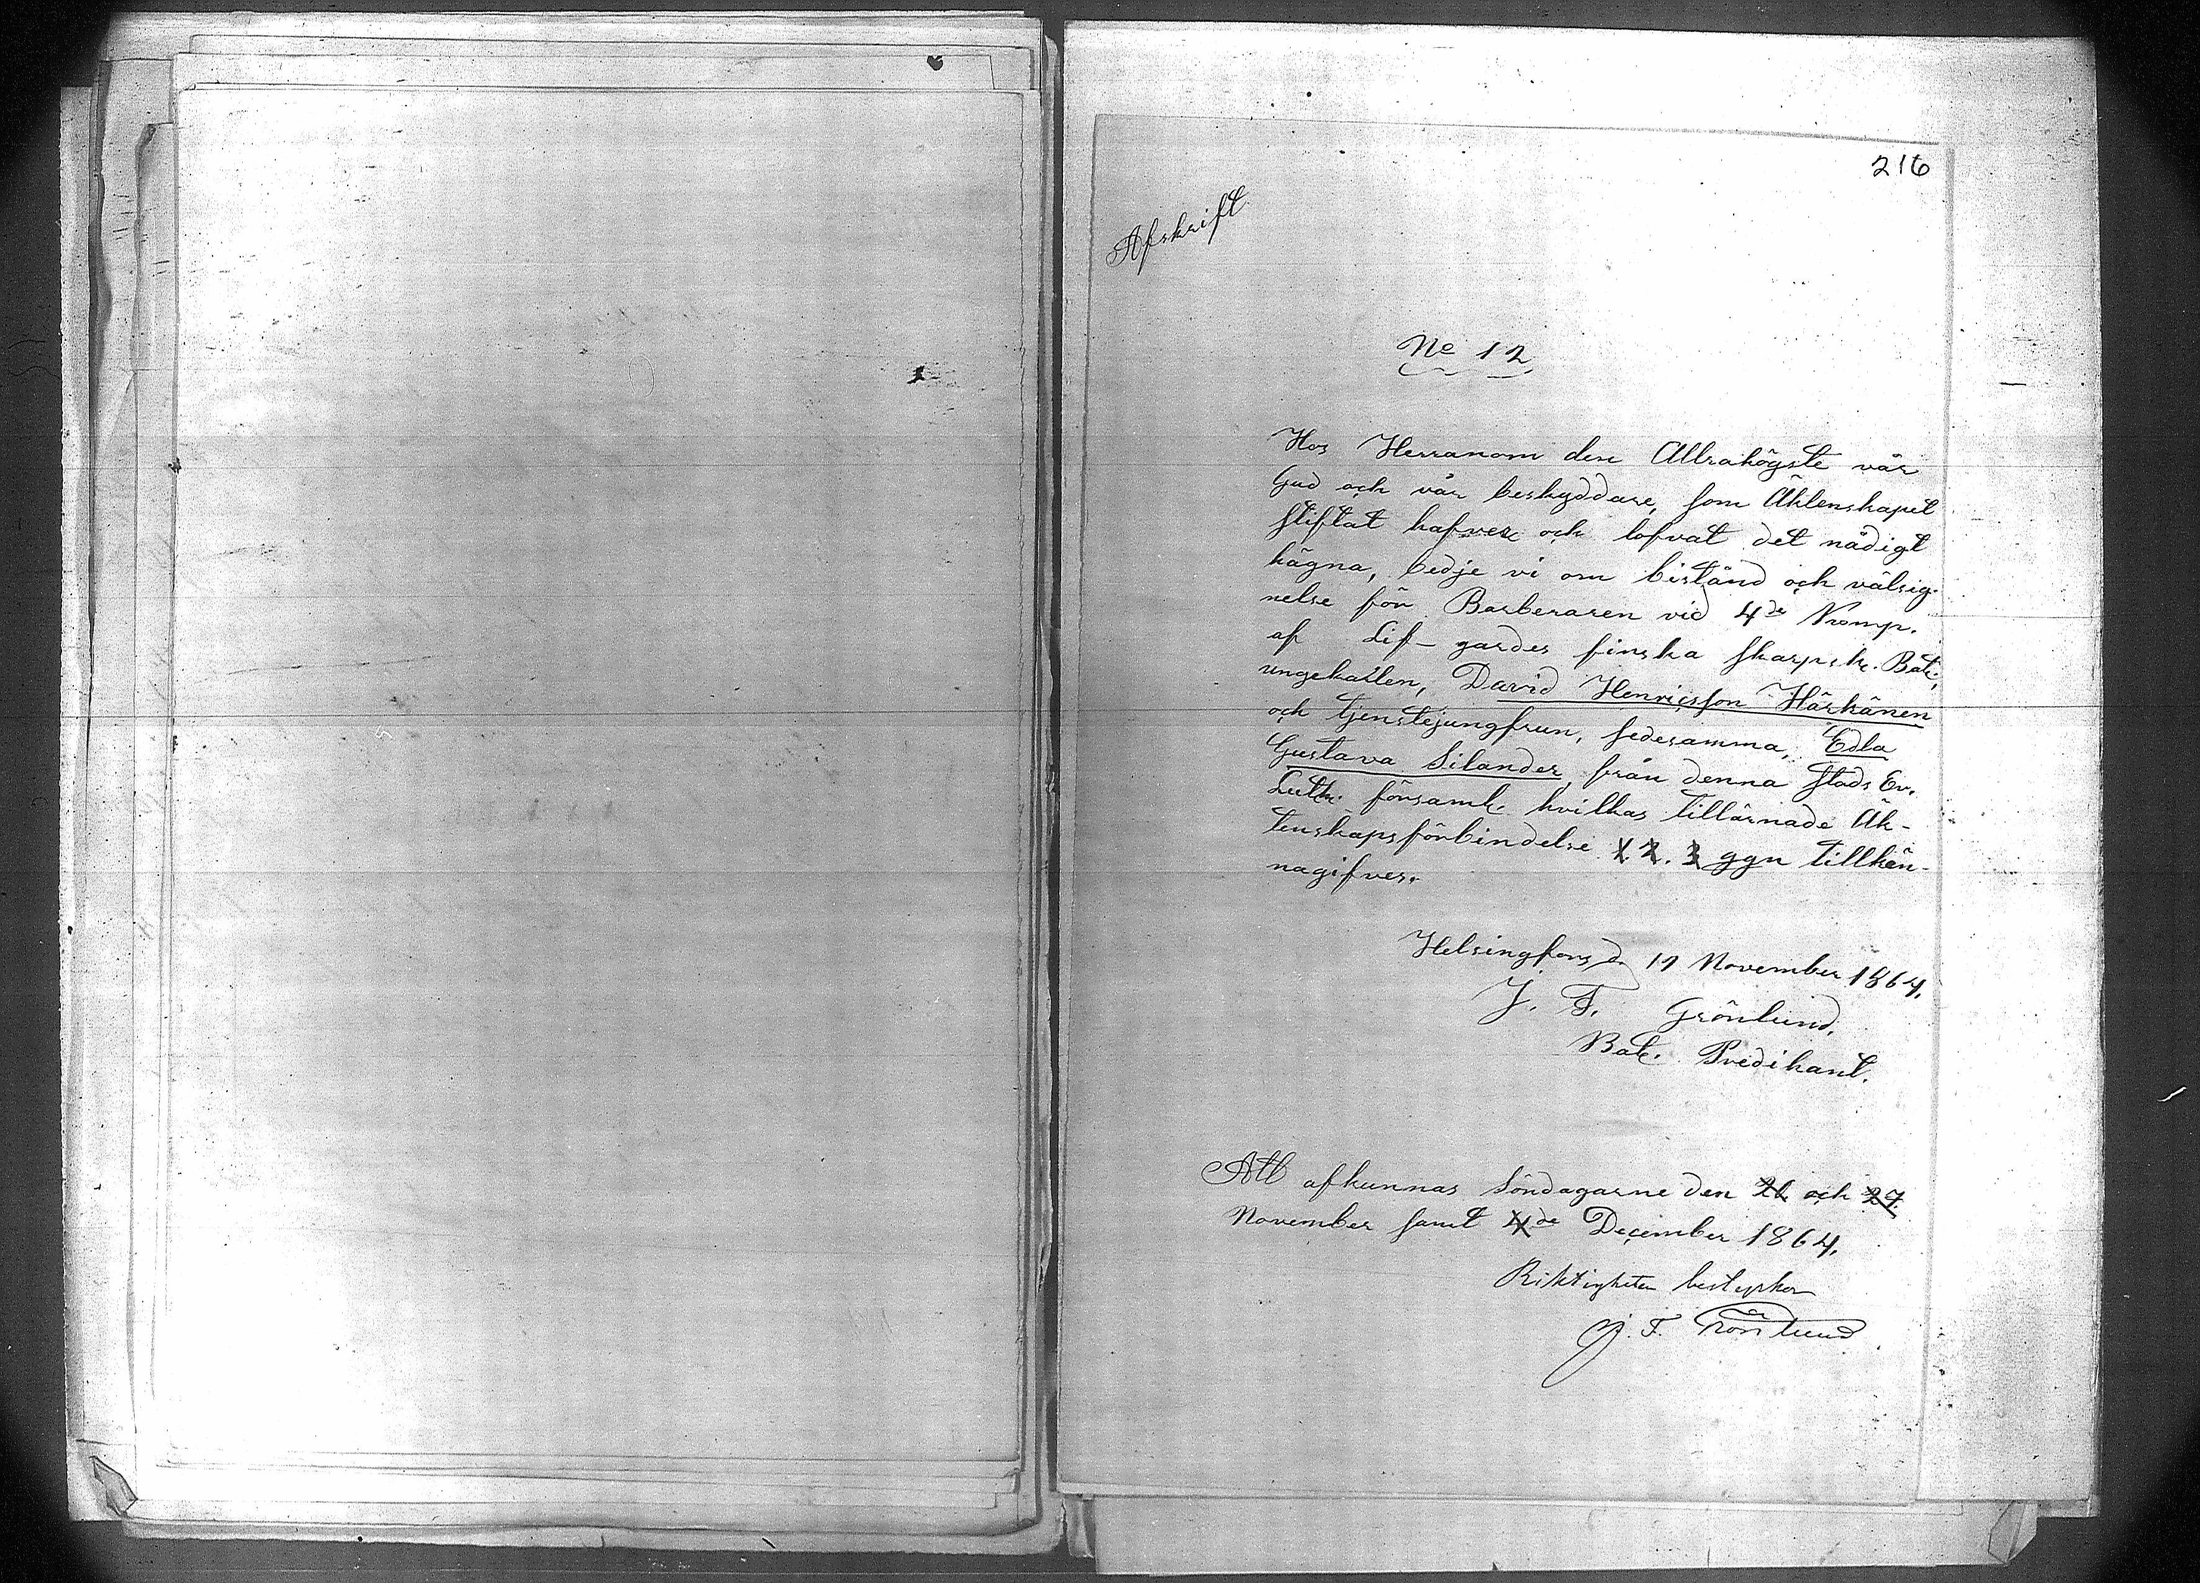 216
Afskrift
No 12
Hos Herranom den Allrahögste vår
Gud och vår beskyddare, som Äktenskapet
stiftat hafver och lofvat det nådigt
hägna, bedje vi om bistånd och välsig-
nelse för Barberaren vid 4de Komp.
af Lif-gardes finska skarpsk. Bat.,
ungekarlen, David Henricsson Härkänen
och tjenstejungfrun, sedesamma, Edla
Gustava Silander, från denna stads Ev.
Luth. församl. hvilkas tillärnade Äk-
tenskapsförbindelse 1. 2. 3 ggn tillkän-
nagifves.
Helsingfors d. 17 November 1864.
J. F. Grönlund,
Bat. Predikant.
Att afkunnas Söndagarne den och 27.
November samt 4de December 1864.
Riktigheten bestyrker
J. F. Grönlund